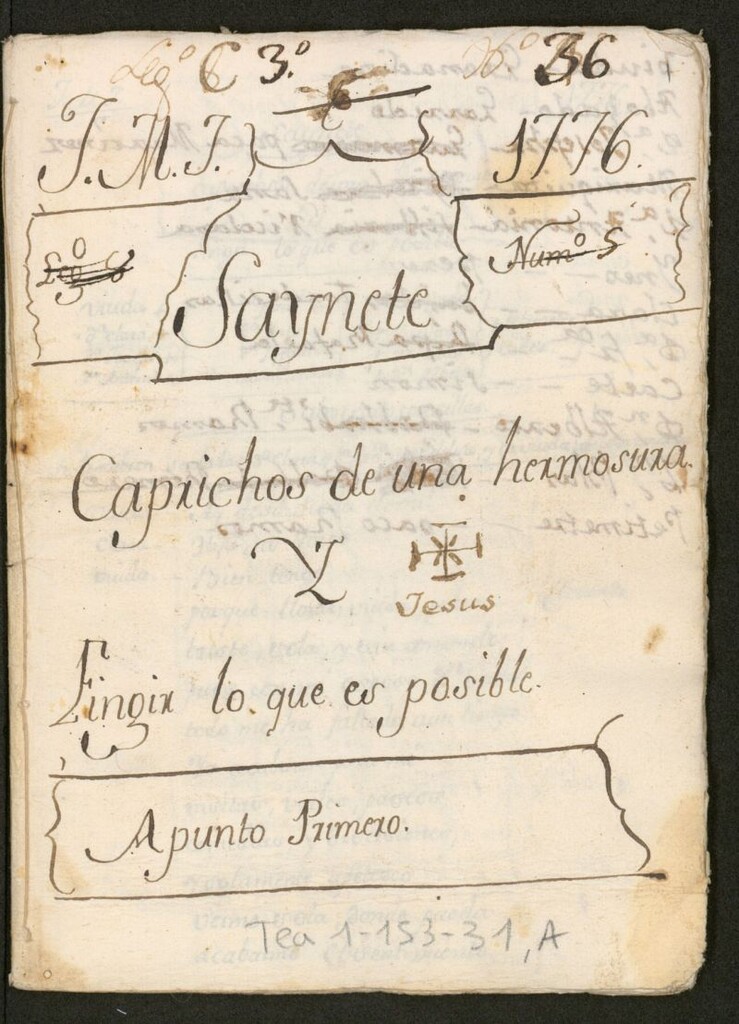 Leg.º C 3.º Nº 36
J.M.J. 1776.
Leg.º Num.º 5
Saynete
Caprichos de una hermosura.
Y
Jesus
Fingir lo que es posible.
Apunto Primero.
Tea 1-153-31, A